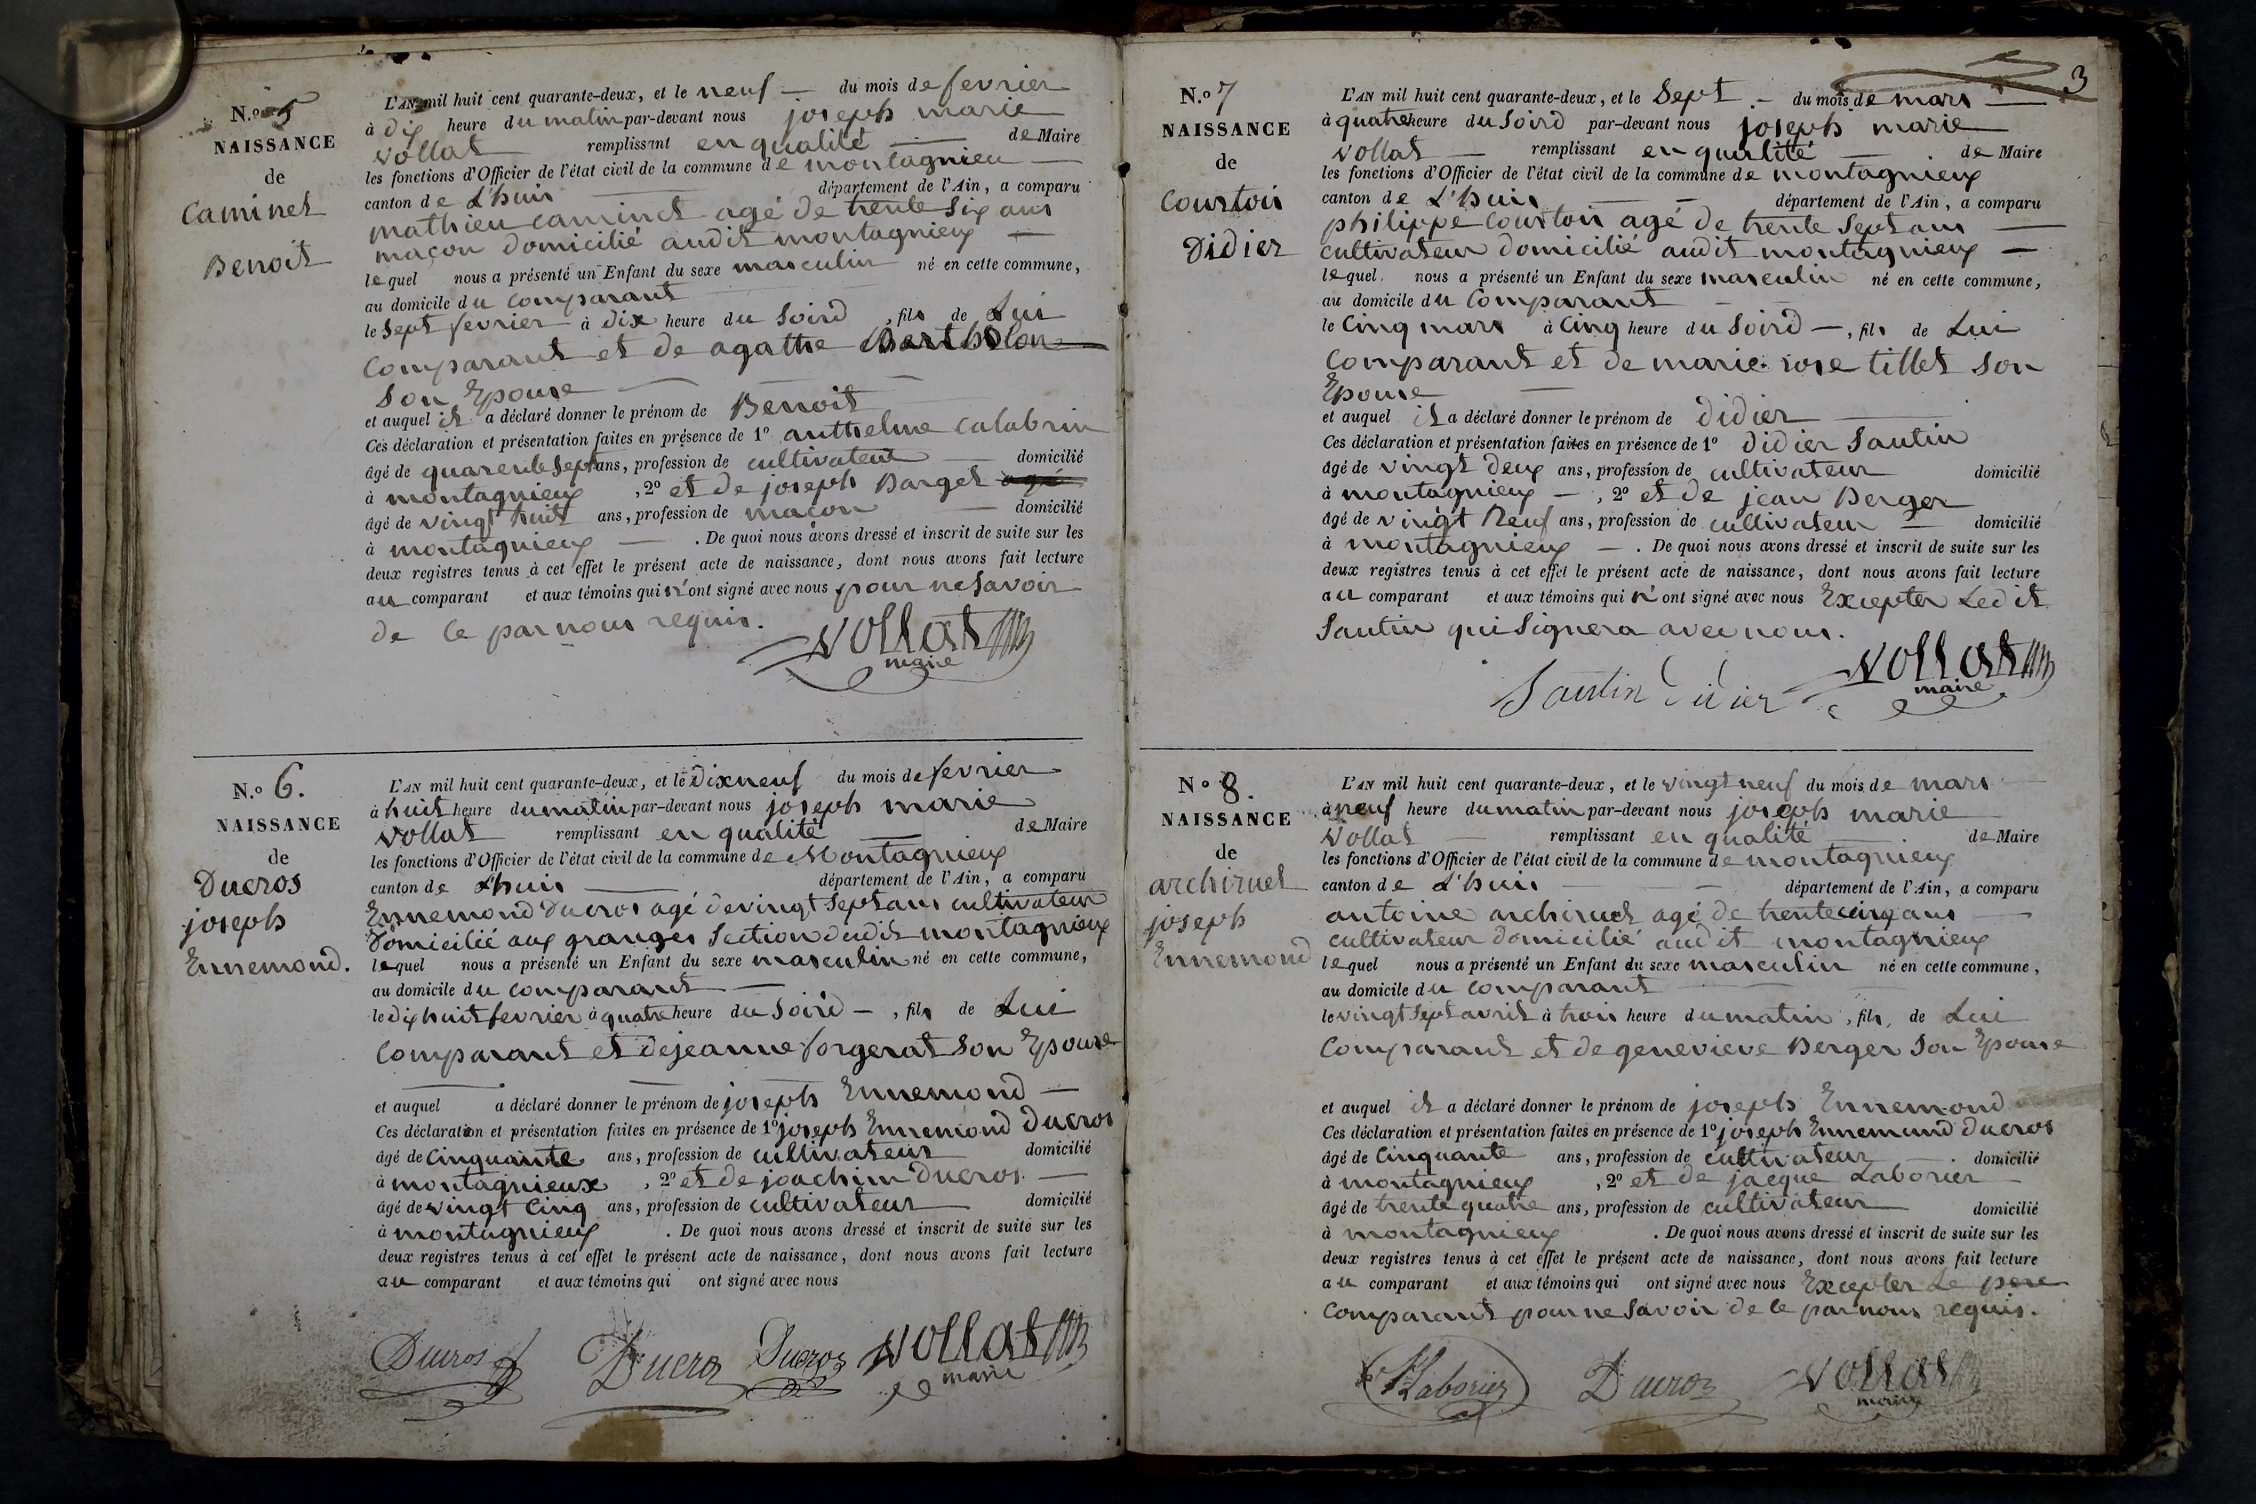 N.o 5
NAISSANCE
de
Caminet
Benoit
L'AN mil huit cent quarante-deux, et le neuf — du mois de fevrier
à dix heure du matin par-devant nous joseph marie
vollat remplissant en qualité — de Maire
les fonctions d'Officier de l'état civil de la commune de montagnieu —
canton de L'huis — département de l'Ain, a comparu
mathieu caminet agé de trente six ans
maçon domicilié audit montagnieux —
lequel nous a présenté un Enfant du sexe masculin né en cette commune,
au domicile du comparant —
le sept fevrier à dix heure du soird , fils de Lui
Comparant et de agathe Bartholon
son Epouse —
et auquel il a déclaré donner le prénom de Benoit
Ces déclaration et présentation faites en présence de 1º anthelme calabrin
âgé de quarente sept ans, profession de cultivateur — domicilié
à montagnieux , 2º et de joseph Barget agé
âgé de vingt huit ans, profession de maçon — domicilié
à montagnieux — . De quoi nous avons dressé et inscrit de suite sur les
deux registres tenus à cet effet le présent acte de naissance, dont nous avons fait lecture
au comparant et aux témoins qui n'ont signé avec nous pour ne savoir
de ce par nous requis.
vollat
maire
N.o 6.
NAISSANCE
de
Ducros
joseph
Ennemond.
L'AN mil huit cent quarante-deux, et le dixneuf du mois de fevrier
à huit heure du matin par-devant nous joseph marie
vollat remplissant en qualité — de Maire
les fonctions d'Officier de l'état civil de la commune de Montagnieux
canton de L'huis — département de l'Ain, a comparu
Ennemond Ducros agé de vingt sept ans cultivateur
domicilié aux granges section dudit montagnieux
lequel nous a présenté un Enfant du sexe masculin né en cette commune,
au domicile du comparant —
le dix huit fevrier à quatre heure du soird — , fils de Lui
comparant et de jeanne forgerat son Epouse
et auquel a déclaré donner le prénom de joseph Ennemond —
Ces déclaration et présentation faites en présence de 1º joseph Ennemond Ducros
âgé de Cinquante ans, profession de cultivateur domicilié
à montagnieux , 2º et de joachim Ducros. —
âgé de vingt Cinq ans, profession de cultivateur domicilié
à montagnieux . De quoi nous avons dressé et inscrit de suite sur les
deux registres tenus à cet effet le présent acte de naissance, dont nous avons fait lecture
au comparant et aux témoins qui ont signé avec nous
Ducros Ducros Ducros vollat
maire
3
N.o 7
NAISSANCE
de
Courtois
Didier
L'AN mil huit cent quarante-deux, et le Sept — du mois de mars —
à quatre heure du soird par-devant nous joseph marie
vollat — remplissant en qualité — de Maire
les fonctions d'Officier de l'état civil de la commune de montagnieux
canton de L'huis — département de l'Ain, a comparu
philippe Courtois agé de trente sept ans —
cultivateur domicilié audit montagnieux —
lequel nous a présenté un Enfant du sexe masculin né en cette commune,
au domicile du Comparant —
le Cinq mars à Cinq heure du soird — , fils de Lui
Comparant et de marie rose tillet son
Epouse —
et auquel il a déclaré donner le prénom de didier —
Ces déclaration et présentation faites en présence de 1º didier Santin
âgé de vingt deux ans, profession de cultivateur domicilié
à montagnieux — , 2º et de jean Berger
âgé de vingt Neuf ans, profession de cultivateur — domicilié
à montagnieux — . De quoi nous avons dressé et inscrit de suite sur les
deux registres tenus à cet effet le présent acte de naissance, dont nous avons fait lecture
au comparant et aux témoins qui n'ont signé avec nous Excepter Ledit
Santin qui signera avec nous.
Santin Didier vollat
maire
N.o 8.
NAISSANCE
de
archiruel
joseph
Ennemond
L'AN mil huit cent quarante-deux, et le vingt neuf du mois de mars —
à neuf heure du matin par-devant nous joseph marie
vollat — remplissant en qualité — de Maire
les fonctions d'Officier de l'état civil de la commune de montagnieux
canton de L'huis — département de l'Ain, a comparu
antoine archiruel agé de trente cinq ans —
cultivateur domicilié audit montagnieux
lequel nous a présenté un Enfant du sexe masculin né en cette commune,
au domicile du comparant —
le vingt sept avril à trois heure du matin , fils de Lui
Comparant et de genevieve Berger son Epouse
et auquel il a déclaré donner le prénom de joseph Ennemond
Ces déclaration et présentation faites en présence de 1º joseph Ennemond Ducros
âgé de Cinquante ans, profession de cultivateur domicilié
à montagnieux , 2º et de jacque Laborier —
âgé de trente quatre ans, profession de cultivateur domicilié
à montagnieux . De quoi nous avons dressé et inscrit de suite sur les
deux registres tenus à cet effet le présent acte de naissance, dont nous avons fait lecture
au comparant et aux témoins qui ont signé avec nous Excepter Le pere
Comparant pour ne savoir de ce par nous requis.
Laborier Ducros vollat
maire